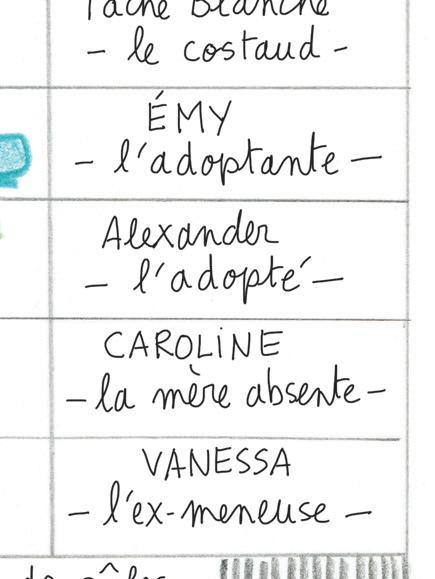 Tache Blanche
- le costaud -
ÉMY
- l'adoptante -
Alexander
- l'adopté -
CAROLiNE
- la mère absente -
VANESSA
- l'ex-meneuse -